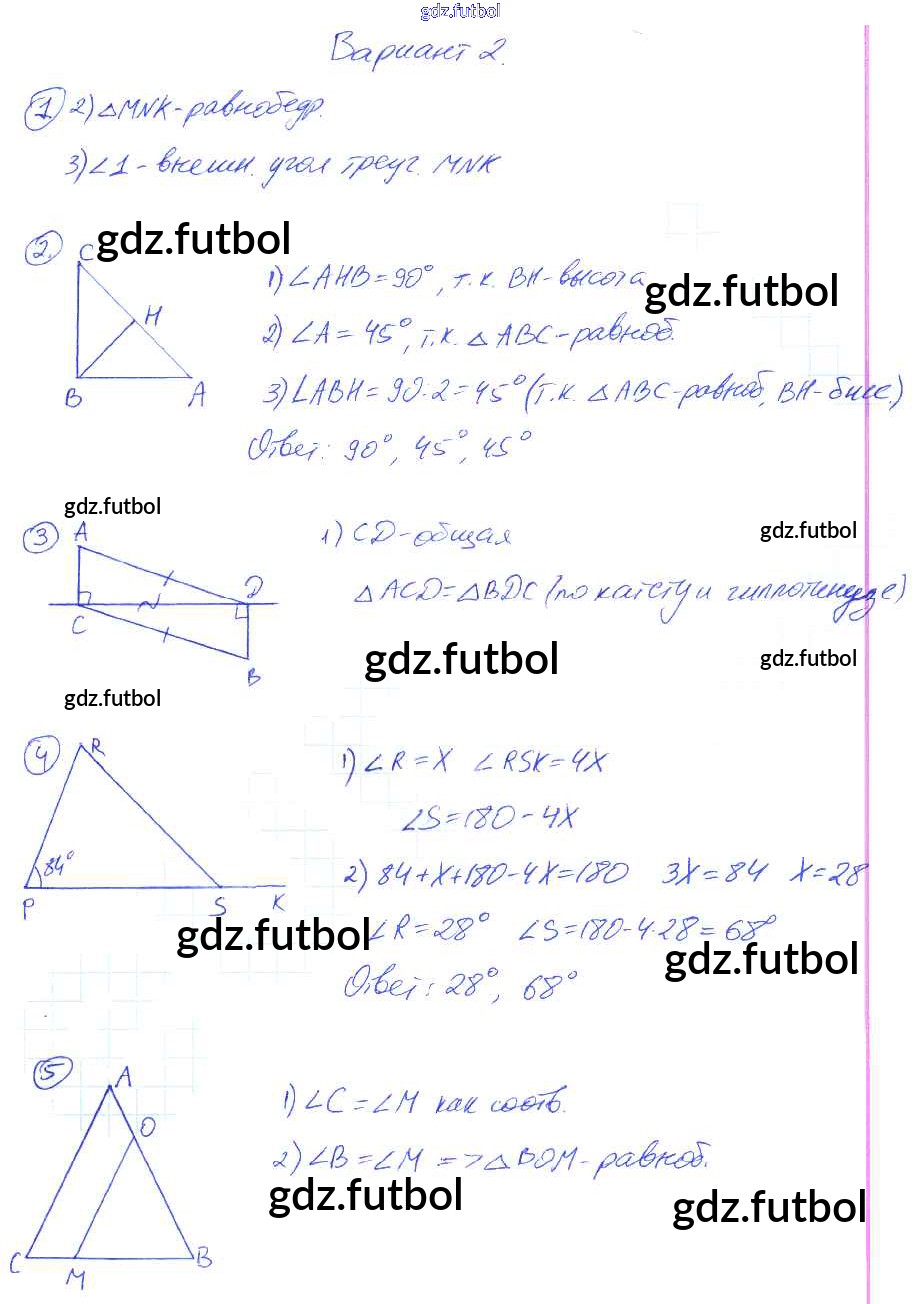 gdz.futbol
Вариант 2.
1. 2) △MNK-равнобедр.
3) ∠1 - внешн. угол треуг. MNK
2. gdz.futbol
C
H
B A
1) ∠AHB = 90°, т.к. BH-высота
gdz.futbol
2) ∠A = 45°, т.к. △ABC-равноб.
3) ∠ABH = 90·2 = 45° (т.к. △ABC-равноб, BH-бисс.)
Ответ: 90°, 45°, 45°
gdz.futbol
3 A
D
C
B
1) CD-общая
gdz.futbol
△ACD = △BDC (по катету и гиппотенузе)
gdz.futbol
gdz.futbol
gdz.futbol
4 R
84°
P S K
1) ∠R = X ∠RSK = 4X
∠S = 180 - 4X
2) 84 + X + 180 - 4X = 180 3X = 84 X = 28
gdz.futbol
∠R = 28° ∠S = 180 - 4·28 = 68°
gdz.futbol
Ответ: 28°, 68°
5 A
O
C M B
1) ∠C = ∠M как соотв.
2) ∠B = ∠M => △BOM-равноб.
gdz.futbol
gdz.futbol